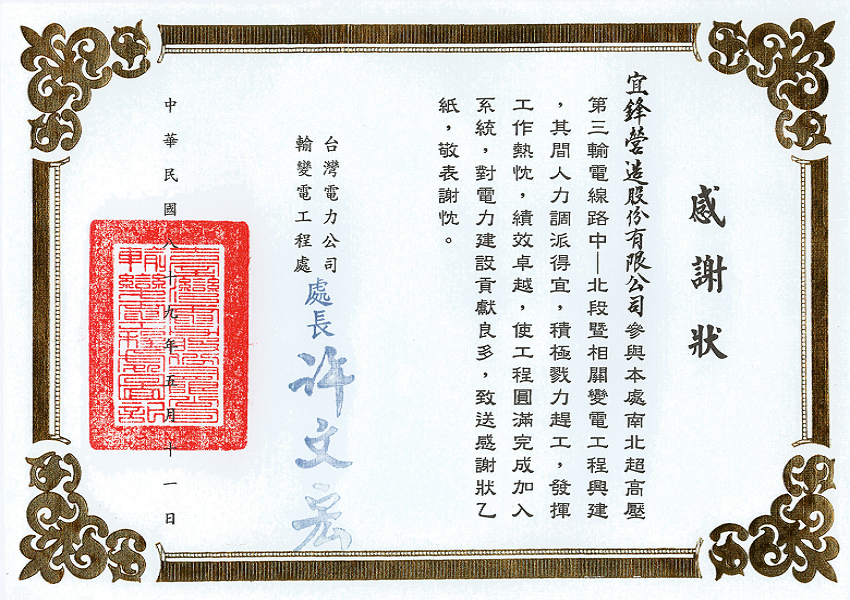 感謝狀
宜鋒營造股份有限公司參與本處南北超高壓
第三輸電線路中—北段暨相關變電工程興建
，其間人力調派得宜，積極戮力趕工，發揮
工作熱忱，績效卓越，使工程圓滿完成加入
系統，對電力建設貢獻良多，致送感謝狀乙
紙，敬表謝忱。
台灣電力公司
輸變電工程處
處長 許文宏
中華民國八十九年五月十一日